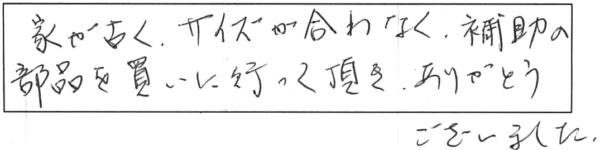 家が古く、サイズが合わなく、補助の
部品を買いに行って頂き、ありがとう
ございました。